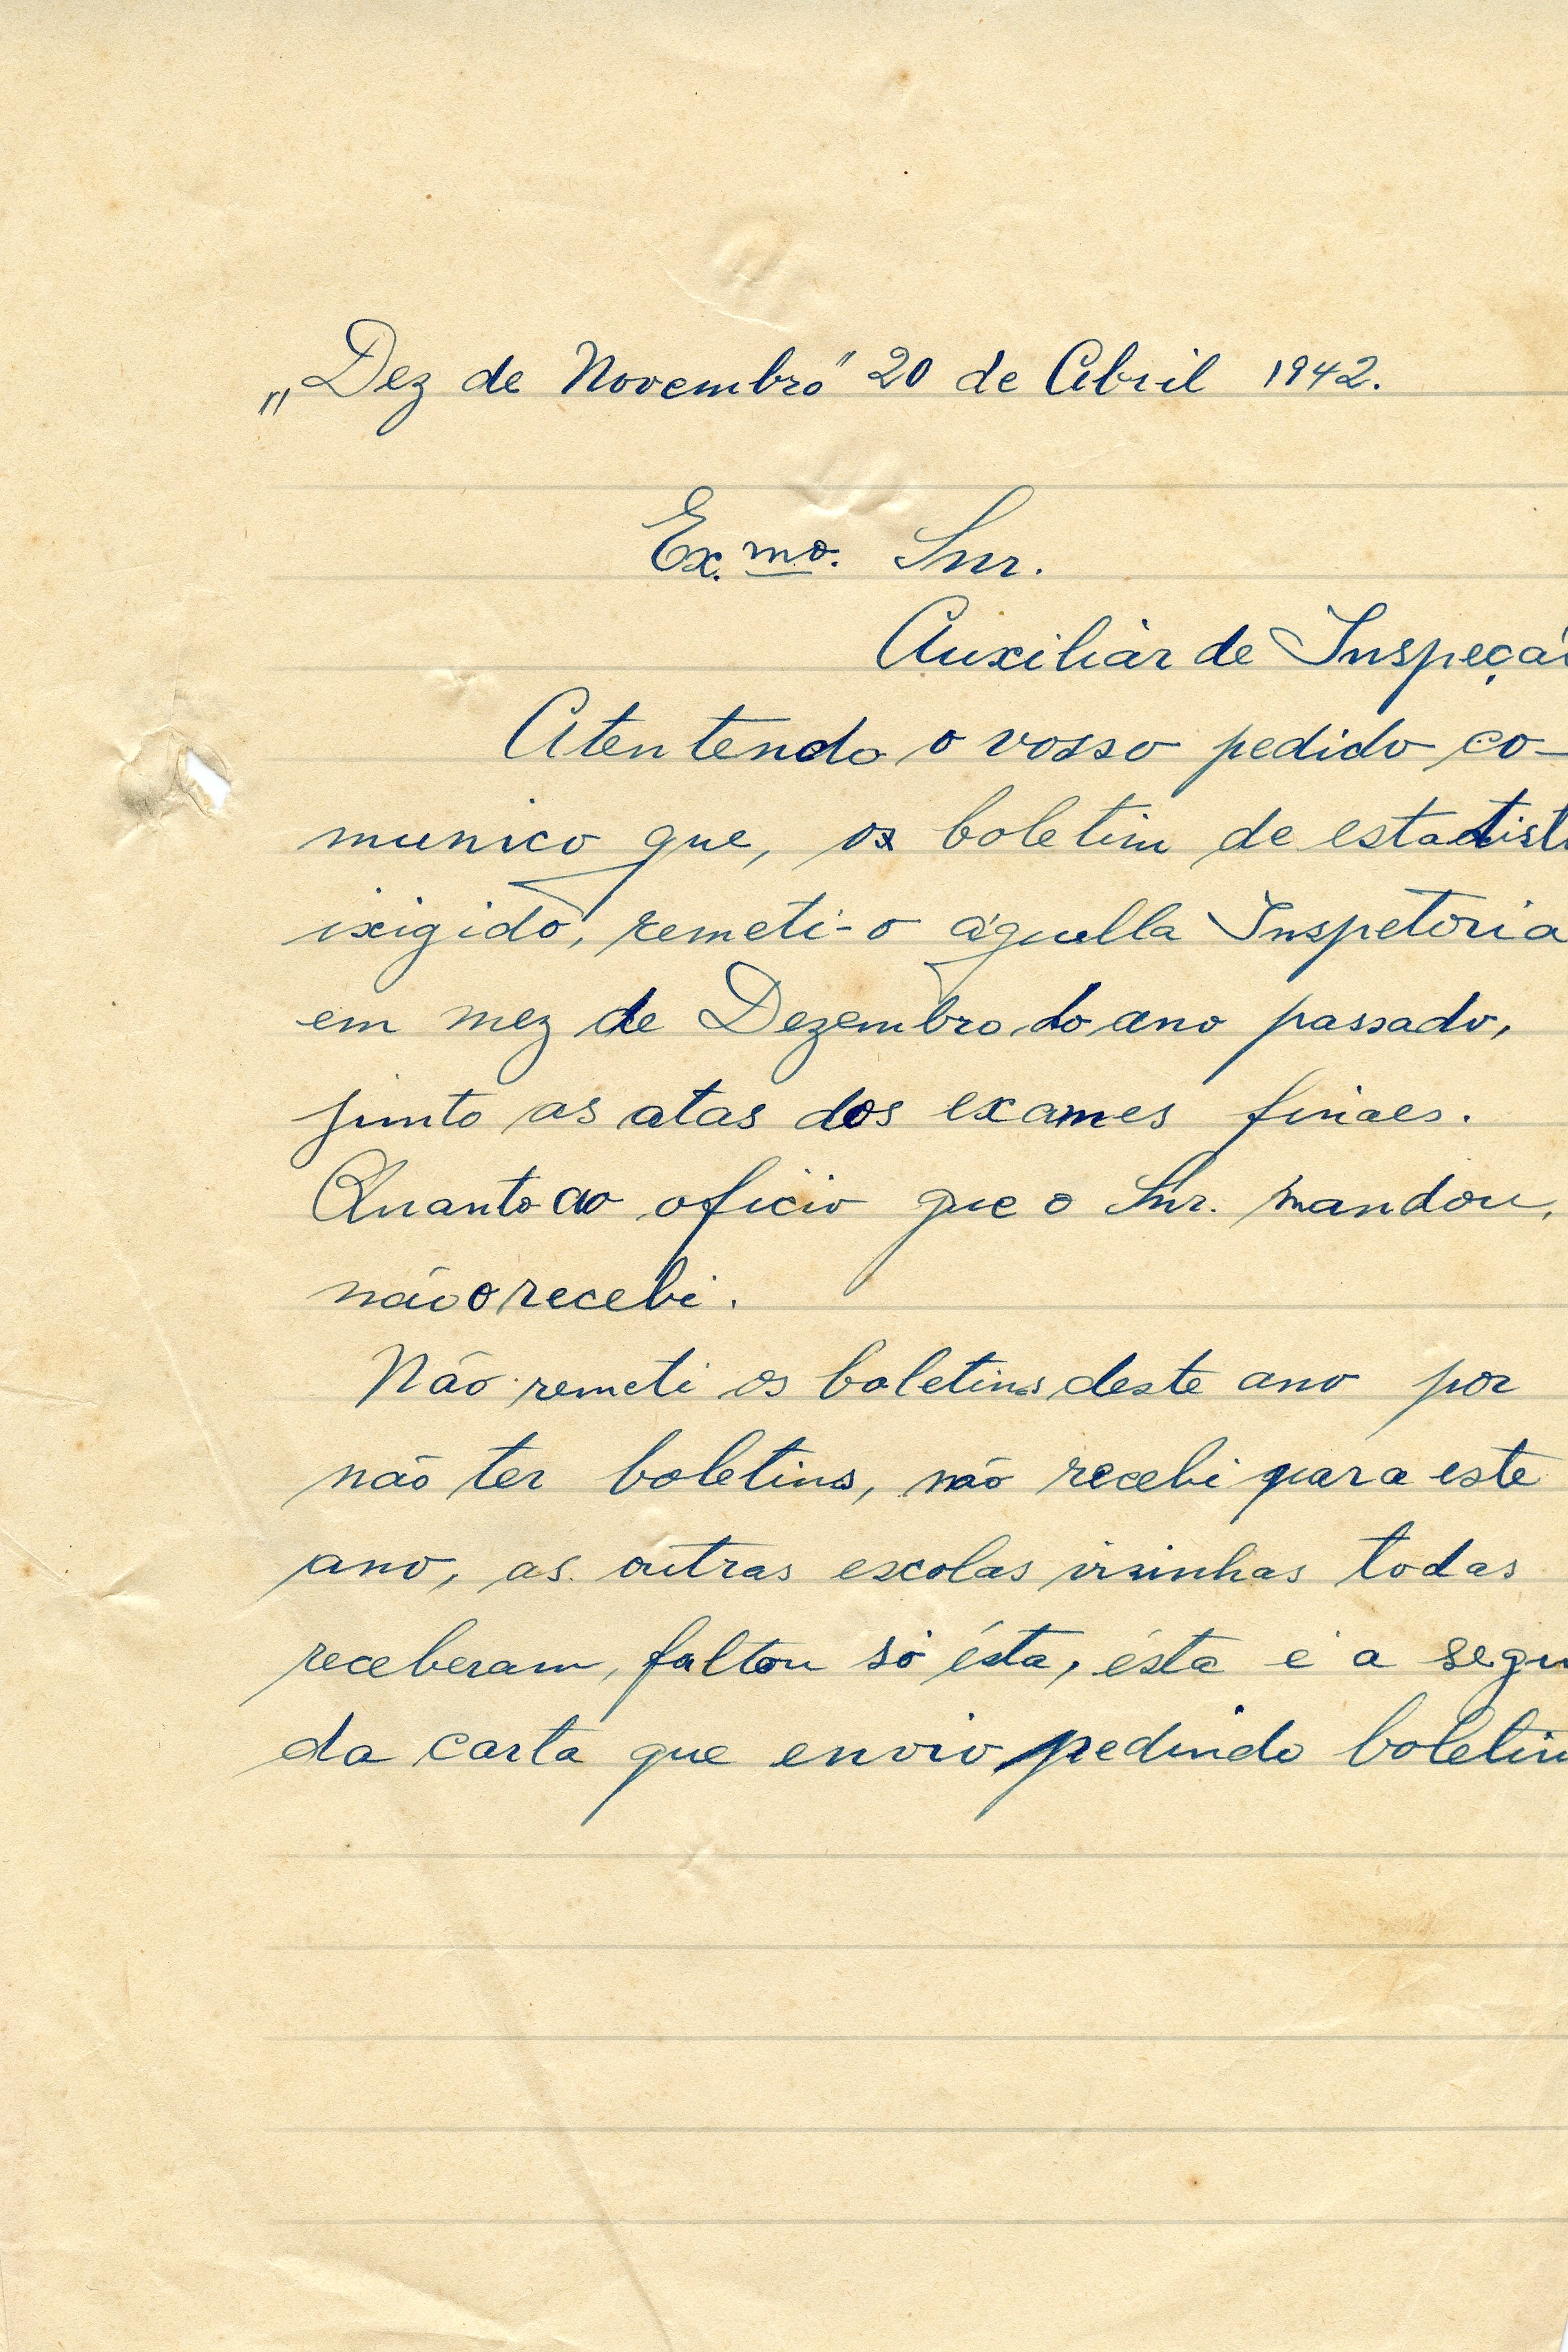 „Dez de Novembro" 20 de Abril 1942.
Ex.mo. Snr.
Auxiliàr de Inspeçã
Atentendo o vosso pedido co-
munico que, os boletim de estatist
ixigido, remeti-o áquella Inspetoria
em mez de Dezembro do ano passado,
junto as atas dos exames finaes.
Quanto ao oficio que o Snr. mandou,
não o recebi.
Não remeti os boletins deste ano por
não ter boletins, não recebi para este
ano, as outras escolas visinhas todas
receberam, faltou só ésta, ésta é a segu
da carta que envio pedindo boletin